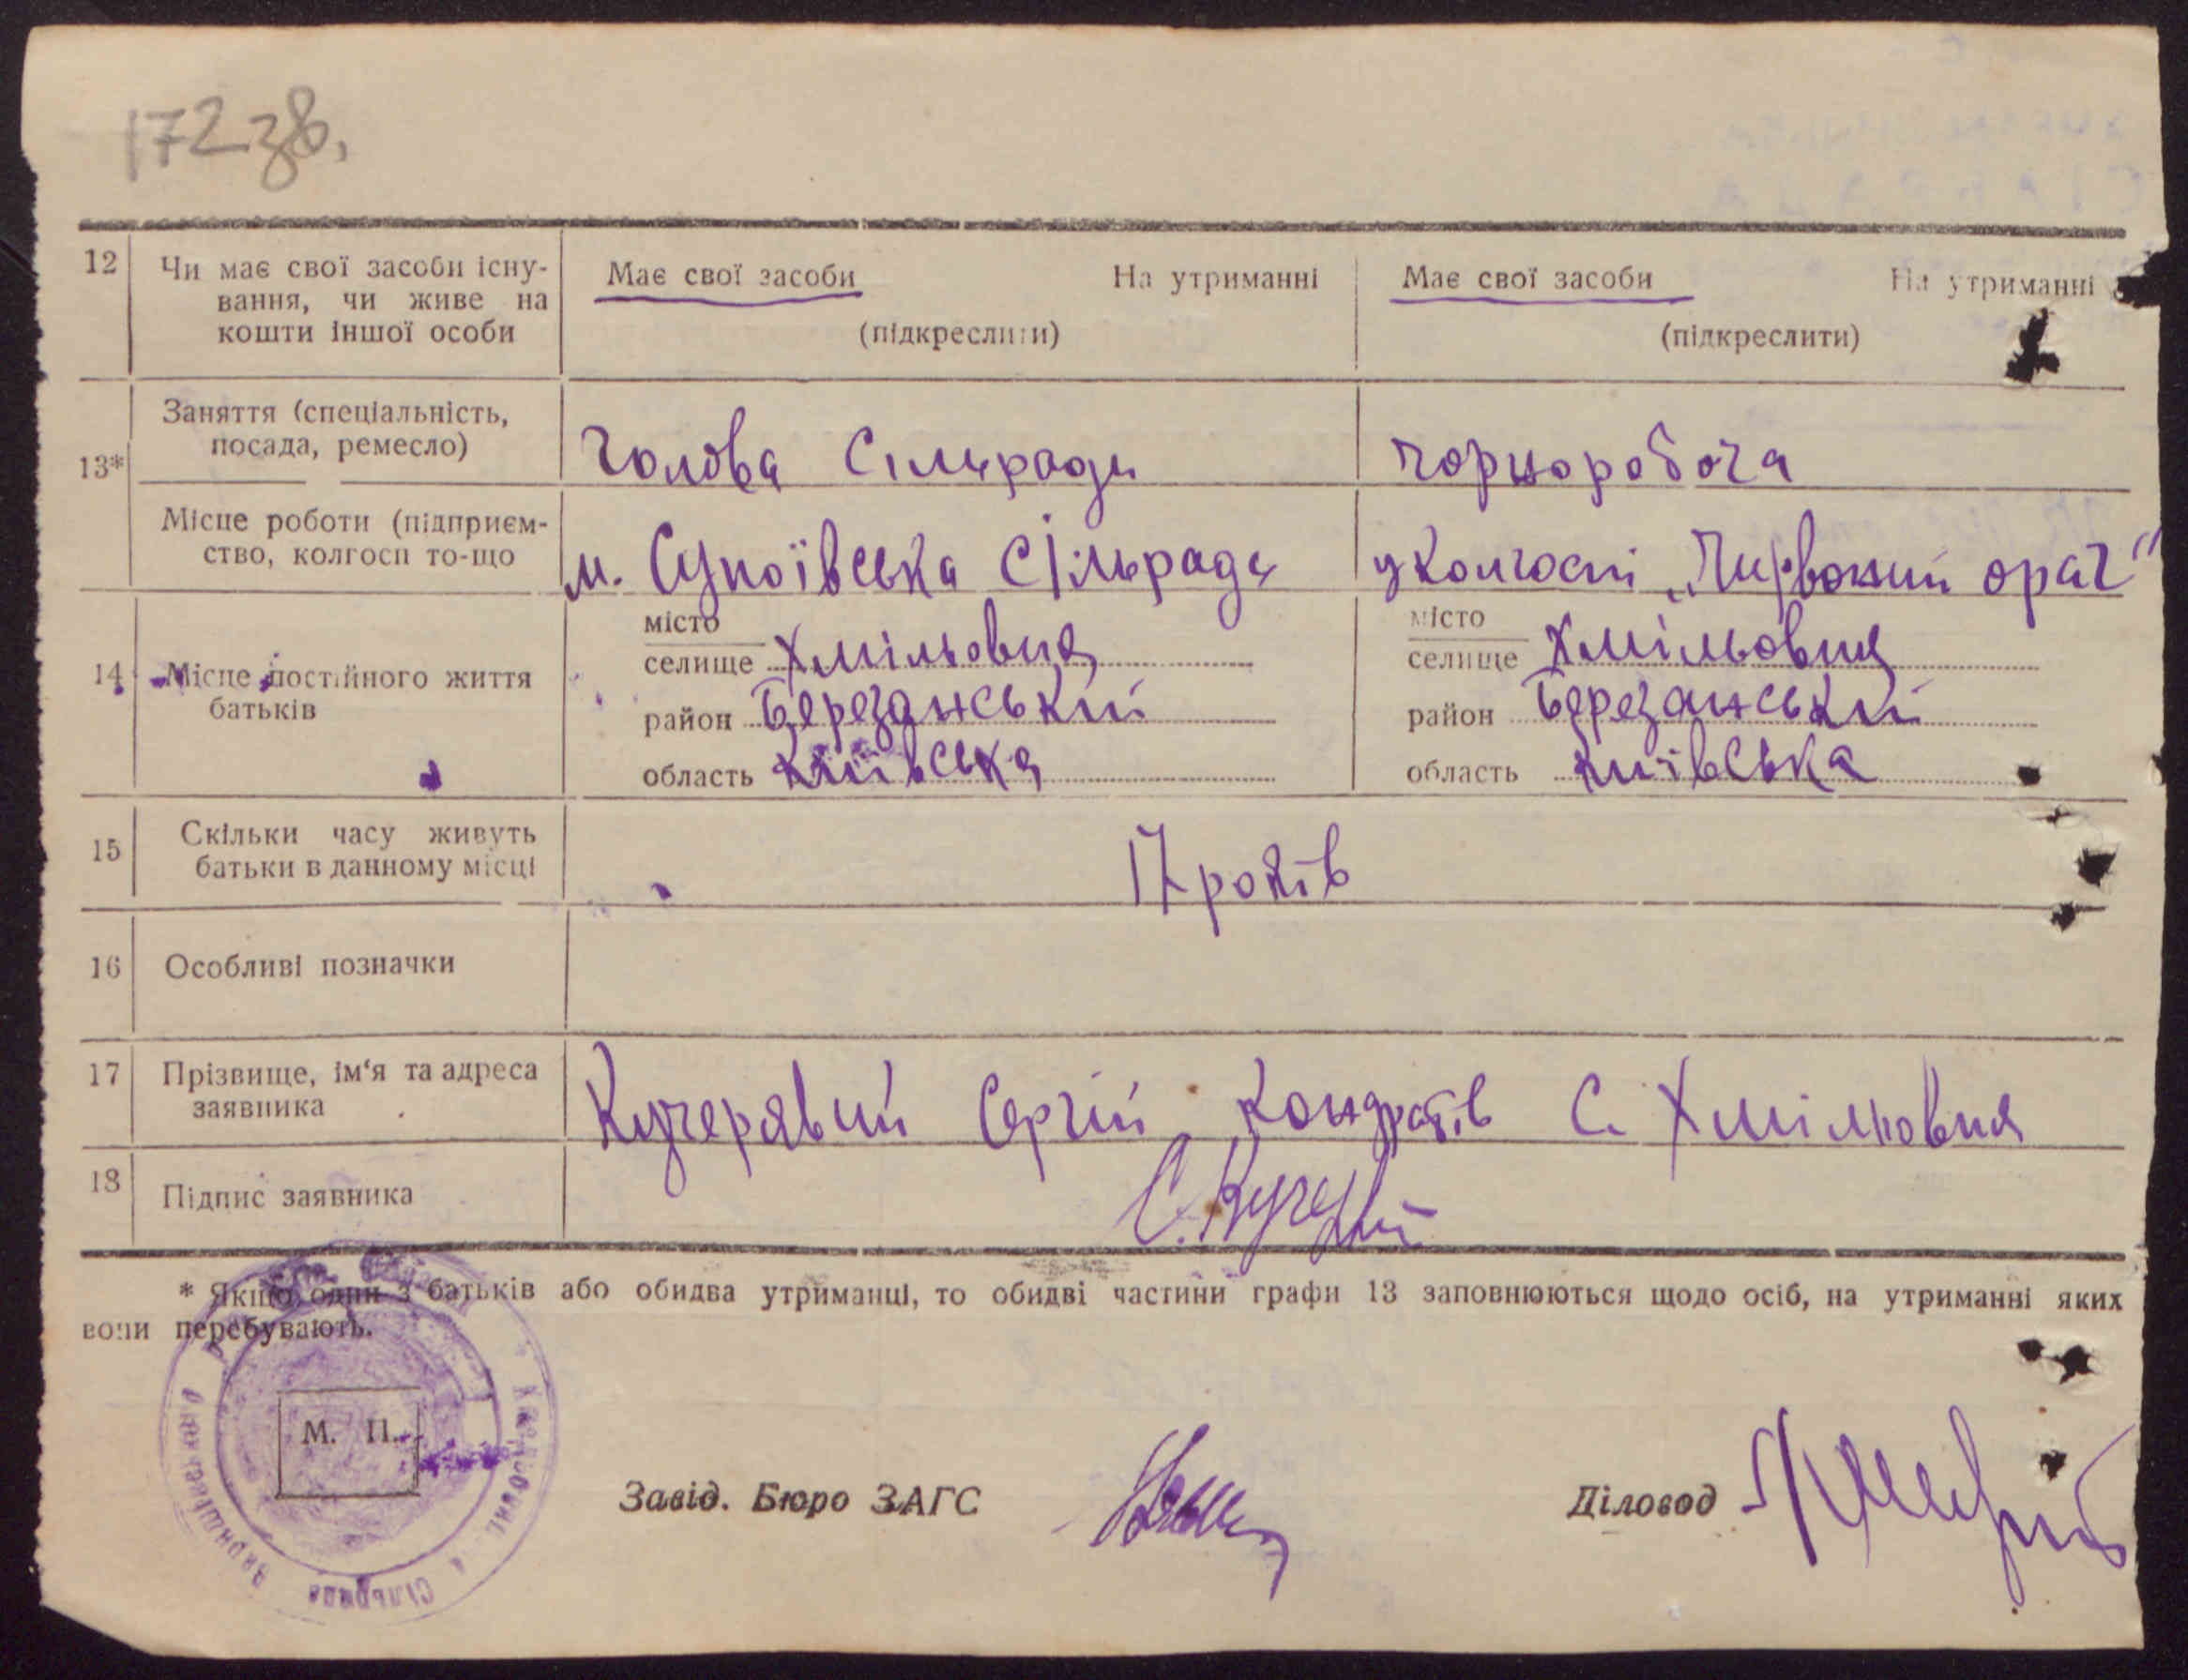 172 зв.
12 Чи має свої засоби існу-
вання, чи живе на
кошти іншої особи
Має свої засоби На утриманні
(підкреслити)
Має свої засоби На утриманні
(підкреслити)
13*
Заняття (спеціальність,
посада, ремесло)
Голова Сільради
Чорноробоча
Місце роботи (підприєм-
ство, колгосп то-що
м. Супоївська Сільрада
у Колгоспі „Червоний орач"
14 Місце постійного життя
батьків
місто
селище Хмільовик
район Березанський
область Київська
місто
селище Хмільовик
район Березанський
область Київська
15 Скільки часу живуть
батьки в данному місці
17 років
16 Особливі позначки
17 Прізвище, ім'я та адреса
заявника
Кучерявий Сергій Кондратів С. Хмільовик
18 Підпис заявника
* Якщо один з батьків або обидва утриманці, то обидві частини графи 13 заповнюються щодо осіб, на утриманні яких
вони перебувають.
М. П.
Завід. Бюро ЗАГС
Діловод